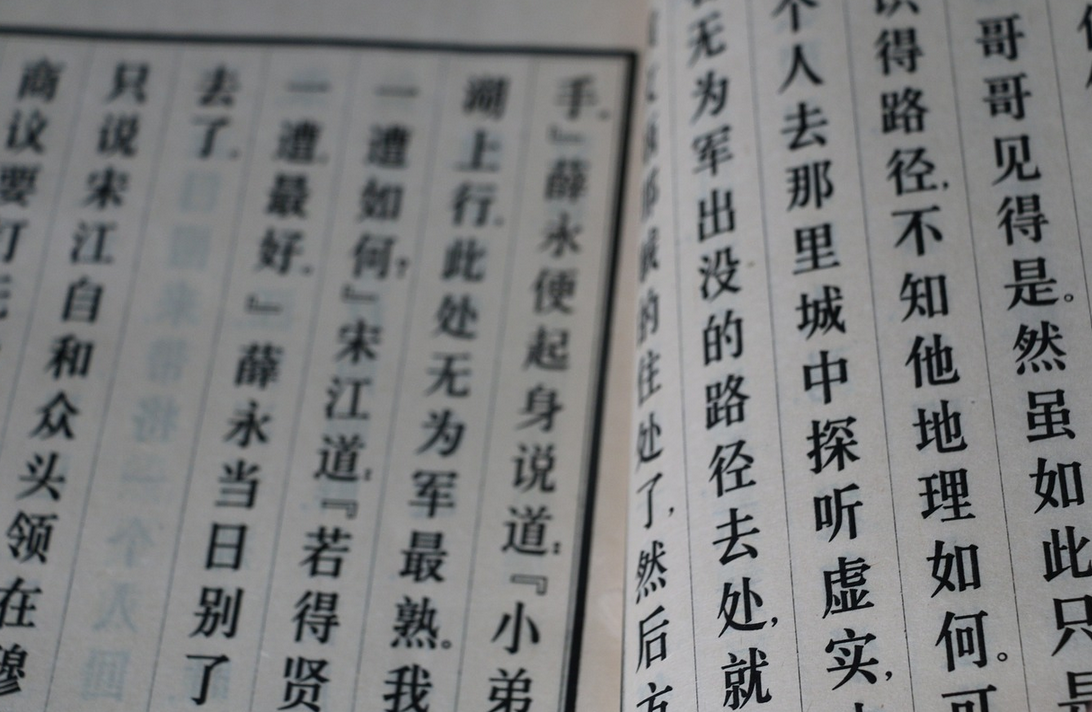 哥哥见得是。然虽如此只是
识得路径，不知他地理如何。可
个人去那里城中探听虚实，
无为军出没的路径去处，就
的住处了，然后方
手。』薛永便起身说道：『小弟
湖上行。此处无为军最熟。我
一遭如何？』宋江道：『若得贤
一遭，最好。』薛永当日别了
去了。
只说宋江自和众头领在穆
商议要打无